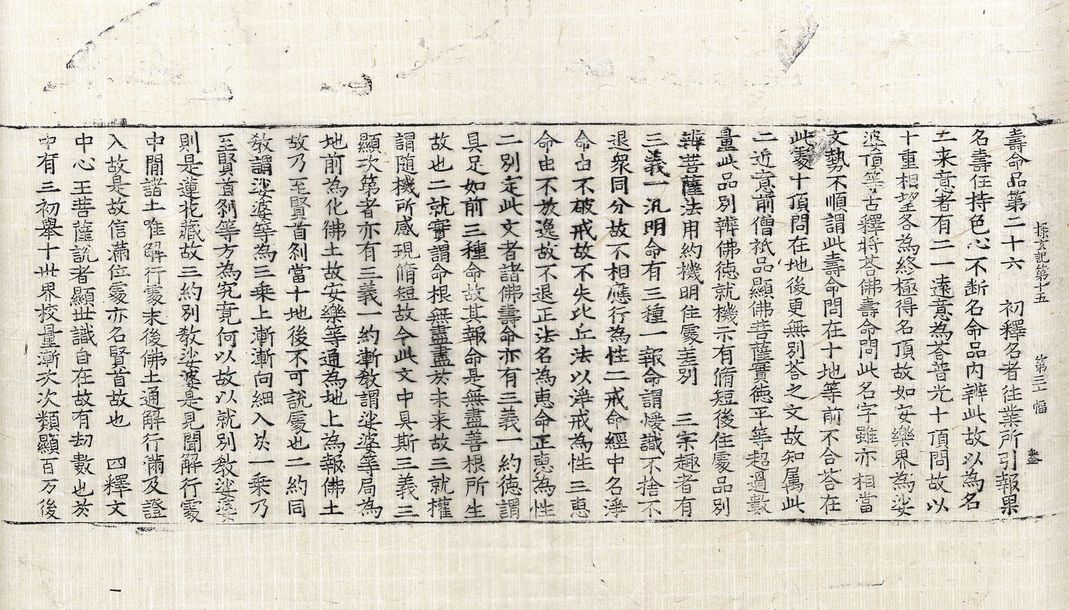 壽命品第二十六　初釋名者往業所引報果
探玄記第十五　第三十幅　盡
名壽任持色心不断名命品内辨此故以為名
二来意者有二一遠意為荅普光十頂問故以
十重相望各為終極得名頂故如安樂界為娑
婆頂等古釋將荅佛壽命問此名字雖亦相當
文勢不順謂此壽命問在十地等前不合荅在
此䖏十頂問在地後更無別荅之文故知属此
二近意前僧祇品顯佛菩薩實徳正等超過數
量此品別辨佛徳就機示有脩短後住䖏品別
辨菩薩法用約機明住䖏差別　三宗趣者有
三義一汎明命有三種一報命謂煖識不捨不
退衆同分故不相應行為性二戒命經中名淨
命由不破戒故不失比丘法以淨戒為性三恵
命由不放逸故不退正法名為恵命正恵為性
二別定此文者諸佛壽命亦有三義一約徳謂
具足如前三種命故其報命是無盡善根所生
故也二就實謂命根無盡盡於未来故三就權
謂隨機所感現脩短故今此文中具斯三義三
顯次第者亦有三義一約漸教謂娑婆等局為
地前為化佛土故安樂等通為地上為報佛土
故乃至賢首刹當十地後不可說䖏也二約同
教謂娑婆等為三乗上漸漸向細入於一乗乃
至賢首刹等方為究竟何以故以就別教娑婆
則是蓮花藏故三約別教娑婆是見聞解行䖏
中間諸土唯解行䖏末後佛土通解行滿及證
入故是故信滿位䖏亦名賢首故也　四釋文
中心王菩薩說者顯世識自在故有劫數也於
中有三初舉十世界挍量漸次次類顯百万後